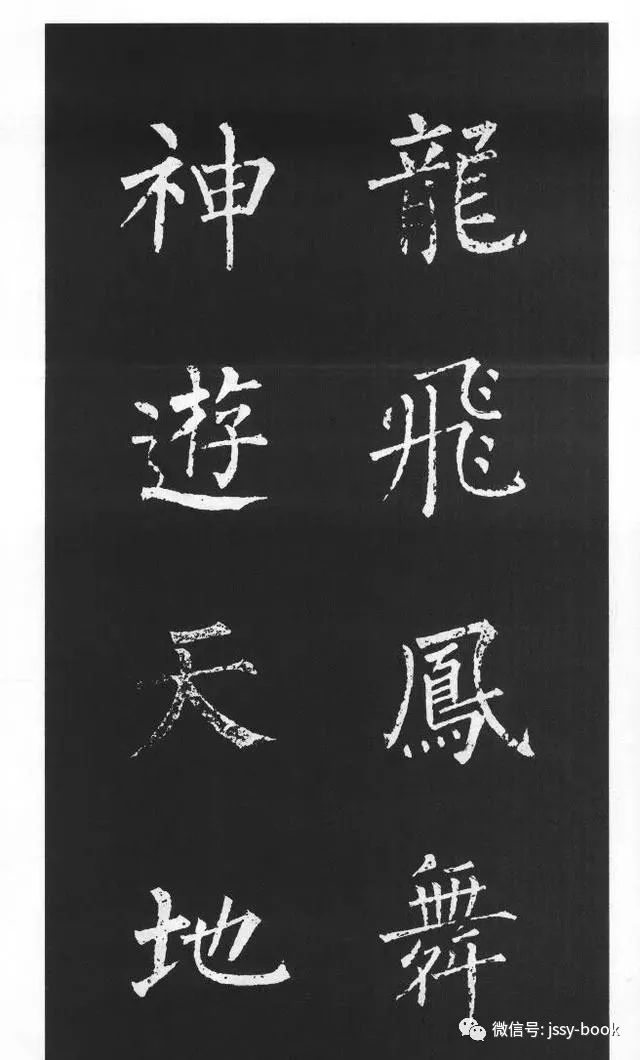 龍飛鳳舞
神遊天地
微信号: jssy-book